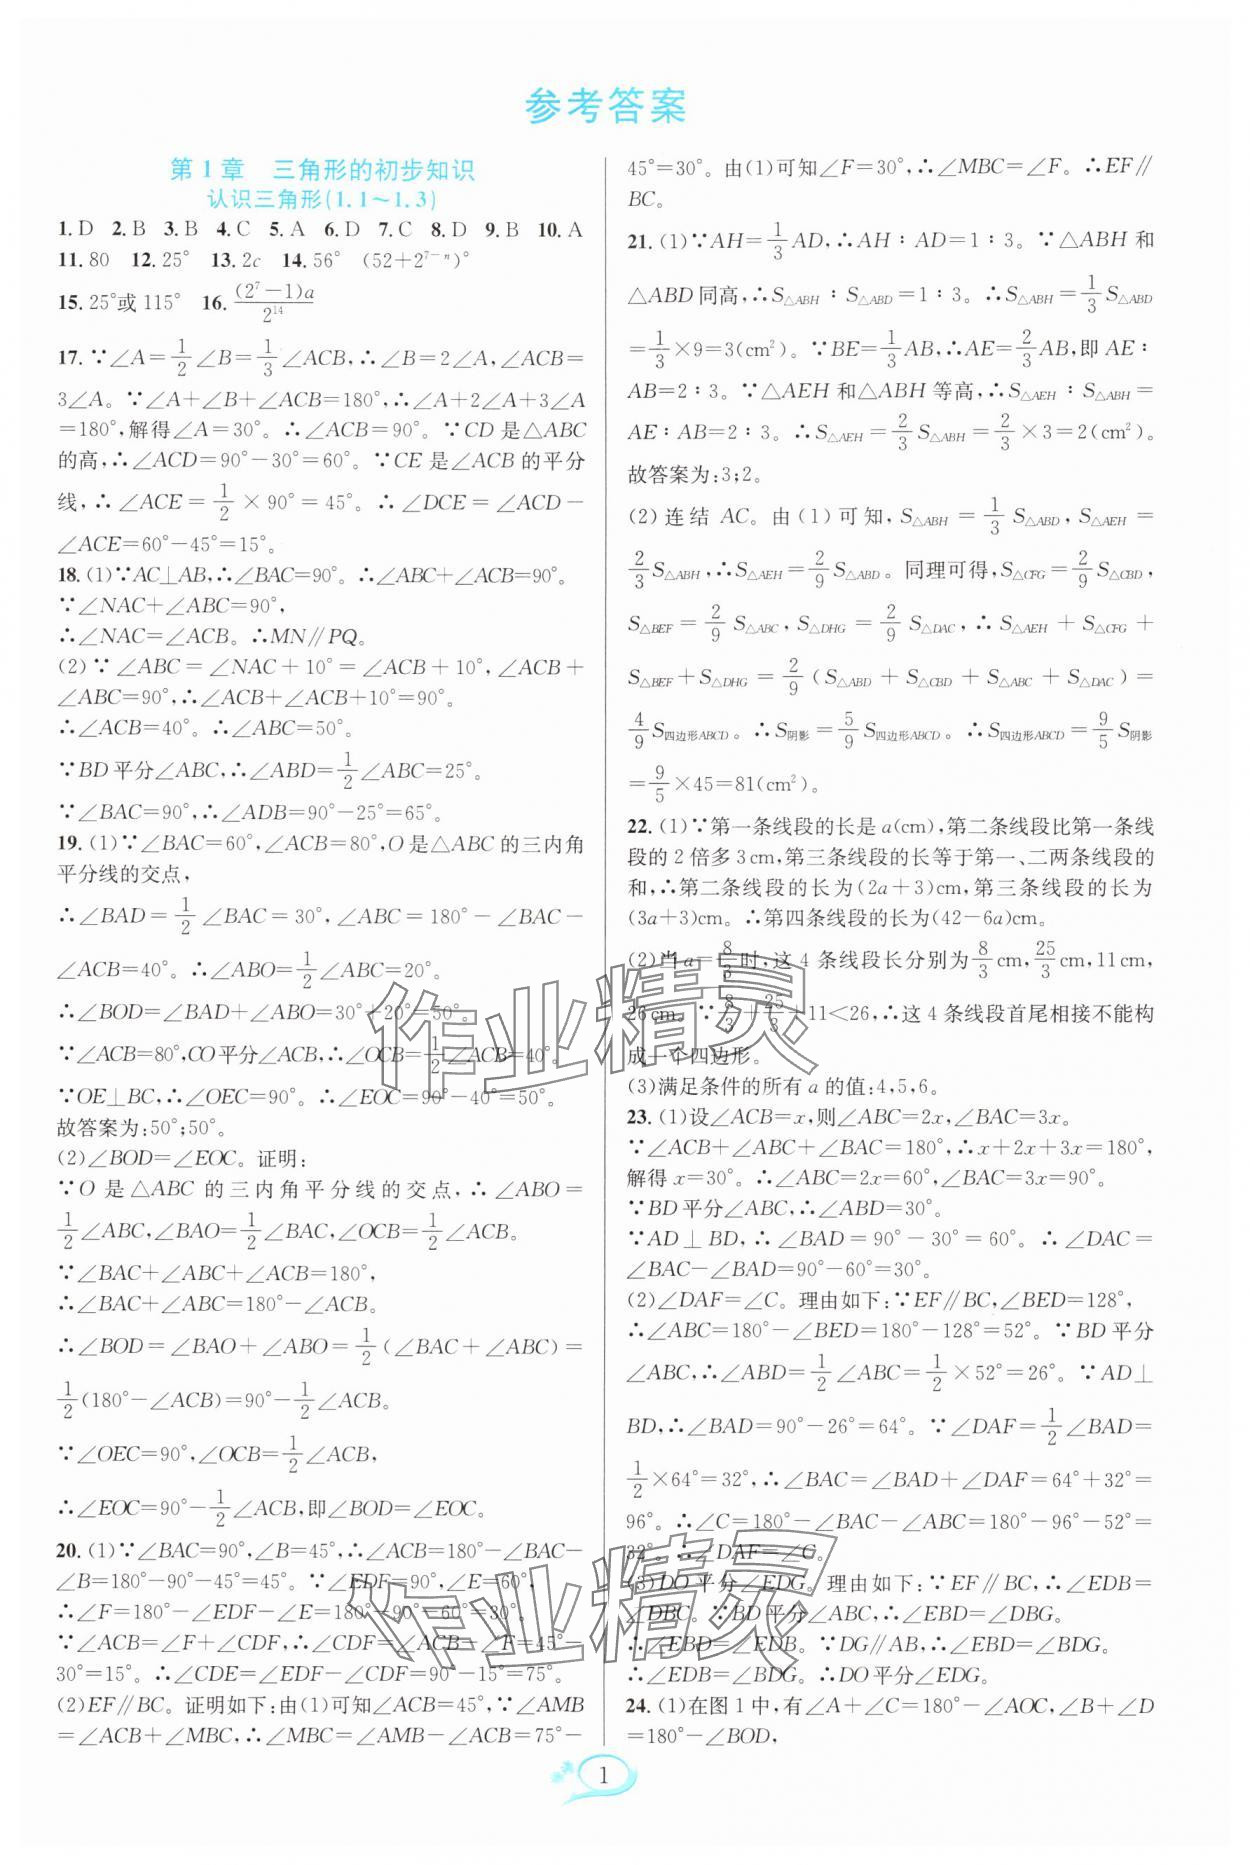 参考答案
第1章 三角形的初步知识
认识三角形(1.1～1.3)
1.D 2.B 3.B 4.C 5.A 6.D 7.C 8.D 9.B 10.A
11.80 12.25° 13.2c 14.56° (52+2^{7-n})°
15.25°或115° 16.\frac{(2^7-1)a}{2^{14}}
17.∵∠A=\frac{1}{2}∠B=\frac{1}{3}∠ACB,∴∠B=2∠A,∠ACB=
3∠A。∵∠A+∠B+∠ACB=180°,∴∠A+2∠A+3∠A
=180°,解得∠A=30°。∴∠ACB=90°。∵CD是△ABC
的高,∴∠ACD=90°-30°=60°。∵CE是∠ACB的平分
线,∴∠ACE=\frac{1}{2}×90°=45°。∴∠DCE=∠ACD-
∠ACE=60°-45°=15°。
18.(1)∵AC⊥AB,∴∠BAC=90°。∴∠ABC+∠ACB=90°。
∵∠NAC+∠ABC=90°,
∴∠NAC=∠ACB。∴MN∥PQ。
(2)∵∠ABC=∠NAC+10°=∠ACB+10°,∠ACB+
∠ABC=90°,∴∠ACB+∠ACB+10°=90°。
∴∠ACB=40°。∴∠ABC=50°。
∵BD平分∠ABC,∴∠ABD=\frac{1}{2}∠ABC=25°。
∵∠BAC=90°,∴∠ADB=90°-25°=65°。
19.(1)∵∠BAC=60°,∠ACB=80°,O是△ABC的三内角
平分线的交点,
∴∠BAD=\frac{1}{2}∠BAC=30°,∠ABC=180°-∠BAC-
∠ACB=40°。∴∠ABO=\frac{1}{2}∠ABC=20°。
∴∠BOD=∠BAD+∠ABO=30°+20°=50°。
∵∠ACB=80°,CO平分∠ACB,∴∠OCB=\frac{1}{2}∠ACB=40°。
∵OE⊥BC,∴∠OEC=90°。∴∠EOC=90°-40°=50°。
故答案为:50°;50°。
(2)∠BOD=∠EOC。证明:
∵O是△ABC的三内角平分线的交点,∴∠ABO=
\frac{1}{2}∠ABC,∠BAO=\frac{1}{2}∠BAC,∠OCB=\frac{1}{2}∠ACB。
∵∠BAC+∠ABC+∠ACB=180°,
∴∠BAC+∠ABC=180°-∠ACB。
∴∠BOD=∠BAO+∠ABO=\frac{1}{2}(∠BAC+∠ABC)=
\frac{1}{2}(180°-∠ACB)=90°-\frac{1}{2}∠ACB。
∵∠OEC=90°,∠OCB=\frac{1}{2}∠ACB,
∴∠EOC=90°-\frac{1}{2}∠ACB,即∠BOD=∠EOC。
20.(1)∵∠BAC=90°,∠B=45°,∴∠ACB=180°-∠BAC-
∠B=180°-90°-45°=45°。∵∠EDF=90°,∠E=60°,
∴∠F=180°-∠EDF-∠E=180°-90°-60°=30°。
∵∠ACB=∠F+∠CDF,∴∠CDF=∠ACB-∠F=45°-
30°=15°。∴∠CDE=∠EDF-∠CDF=90°-15°=75°。
(2)EF∥BC。证明如下:由(1)可知∠ACB=45°,∵∠AMB
=∠ACB+∠MBC,∴∠MBC=∠AMB-∠ACB=75°-
45°=30°。由(1)可知∠F=30°,∴∠MBC=∠F。∴EF∥
BC。
21.(1)∵AH=\frac{1}{3}AD,∴AH∶AD=1∶3。∵△ABH和
△ABD同高,∴S_{△ABH}∶S_{△ABD}=1∶3。∴S_{△ABH}=\frac{1}{3}S_{△ABD}
=\frac{1}{3}×9=3(cm²)。∵BE=\frac{1}{3}AB,∴AE=\frac{2}{3}AB,即AE∶
AB=2∶3。∵△AEH和△ABH等高,∴S_{△AEH}∶S_{△ABH}=
AE∶AB=2∶3。∴S_{△AEH}=\frac{2}{3}S_{△ABH}=\frac{2}{3}×3=2(cm²)。
故答案为:3;2。
(2)连结AC。由(1)可知,S_{△ABH}=\frac{1}{3}S_{△ABD},S_{△AEH}=
\frac{2}{3}S_{△ABH},∴S_{△AEH}=\frac{2}{9}S_{△ABD}。同理可得,S_{△CFG}=\frac{2}{9}S_{△CBD},
S_{△BEF}=\frac{2}{9}S_{△ABC},S_{△DHG}=\frac{2}{9}S_{△DAC},∴S_{△AEH}+S_{△CFG}+
S_{△BEF}+S_{△DHG}=\frac{2}{9}(S_{△ABD}+S_{△CBD}+S_{△ABC}+S_{△DAC})=
\frac{4}{9}S_{四边形ABCD}。∴S_{阴影}=\frac{5}{9}S_{四边形ABCD}。∴S_{四边形ABCD}=\frac{9}{5}S_{阴影}
=\frac{9}{5}×45=81(cm²)。
22.(1)∵第一条线段的长是a(cm),第二条线段比第一条线
段的2倍多3cm,第三条线段的长等于第一、二两条线段的
和,∴第二条线段的长为(2a+3)cm,第三条线段的长为
(3a+3)cm。∴第四条线段的长为(42-6a)cm。
(2)当a=\frac{8}{3}时,这4条线段长分别为\frac{8}{3}cm,\frac{25}{3}cm,11cm,
26cm。∵\frac{8}{3}+\frac{25}{3}+11<26,∴这4条线段首尾相接不能构
成一个四边形。
(3)满足条件的所有a的值:4,5,6。
23.(1)设∠ACB=x,则∠ABC=2x,∠BAC=3x。
∵∠ACB+∠ABC+∠BAC=180°,∴x+2x+3x=180°,
解得x=30°。∴∠ABC=2x=60°,∠BAC=3x=90°。
∵BD平分∠ABC,∴∠ABD=30°。
∵AD⊥BD,∴∠BAD=90°-30°=60°。∴∠DAC=
∠BAC-∠BAD=90°-60°=30°。
(2)∠DAF=∠C。理由如下:∵EF∥BC,∠BED=128°,
∴∠ABC=180°-∠BED=180°-128°=52°。∵BD平分
∠ABC,∴∠ABD=\frac{1}{2}∠ABC=\frac{1}{2}×52°=26°。∵AD⊥
BD,∴∠BAD=90°-26°=64°。∵∠DAF=\frac{1}{2}∠BAD=
\frac{1}{2}×64°=32°,∴∠BAC=∠BAD+∠DAF=64°+32°=
96°。∴∠C=180°-∠BAC-∠ABC=180°-96°-52°=
32°。∴∠DAF=∠C。
(3)DO平分∠EDG。理由如下:∵EF∥BC,∴∠EDB=
∠DBC。∵BD平分∠ABC,∴∠EBD=∠DBG。
∴∠EBD=∠EDB。∵DG∥AB,∴∠EBD=∠BDG。
∴∠EDB=∠BDG。∴DO平分∠EDG。
24.(1)在图1中,有∠A+∠C=180°-∠AOC,∠B+∠D
=180°-∠BOD,
1
作业精灵
作业精灵